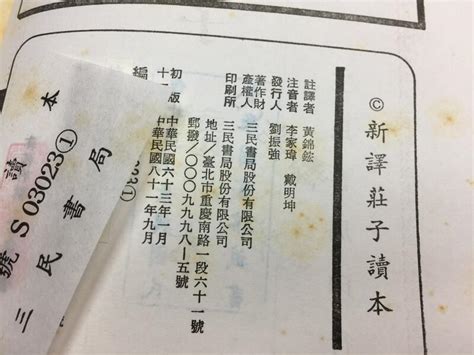 © 新譯莊子讀本
註譯者 黃錦鋐
注音者 李家瑋 戴明坤
發行人 劉振強
著作財
產權人 三民書局股份有限公司
印刷所 三民書局股份有限公司
地址/臺北市重慶南路一段六十一號
郵撥/〇〇〇九九九八—五號
初 版 中華民國六十三年一月
中華民國八十一年九月
編
讀 本
號 S 03023①
三 民 書 局